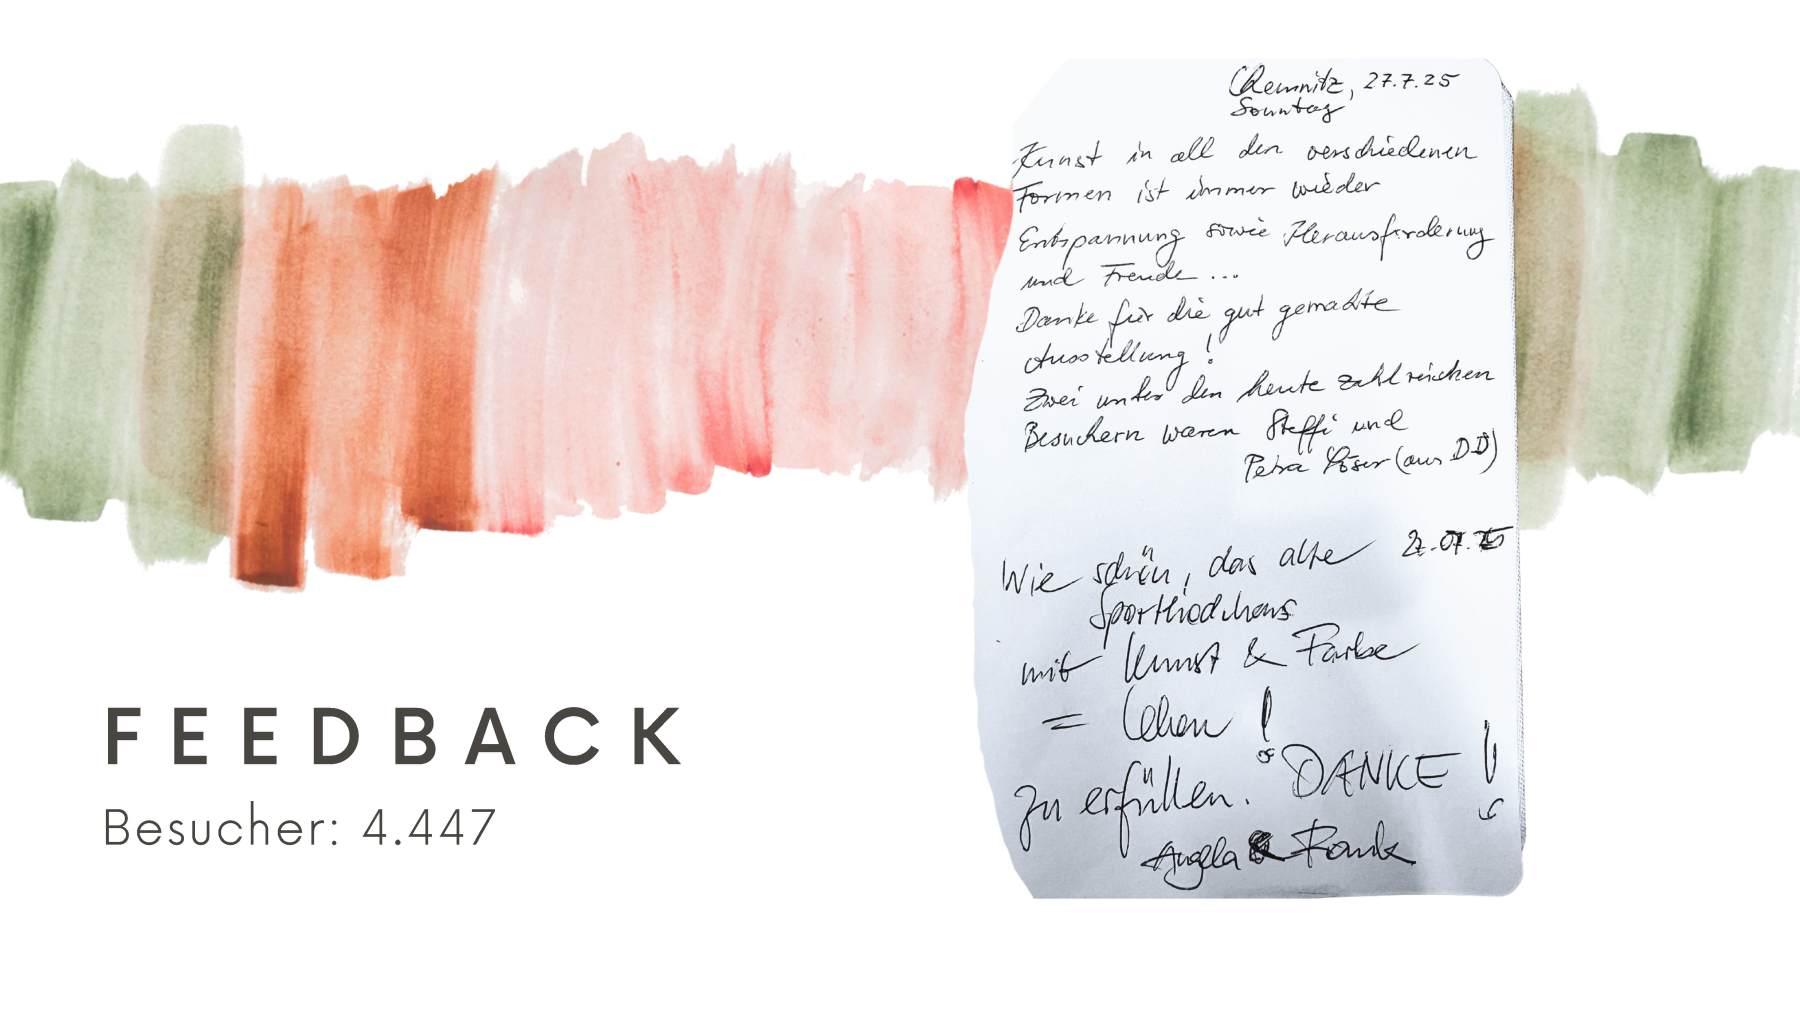 FEEDBACK
Besucher: 4.447
Chemnitz, 27.7.25
Sonntag
Kunst in all den verschiedenen
Formen ist immer wieder
Entspannung sowie Herausforderung
und Freude...
Danke für die gut gemachte
Ausstellung!
Zwei unter den heute zahlreichen
Besuchern waren Steffi und
Petra (aus DD)
Wie schön, das alte
Sporthochhaus
mit Kunst & Farbe
= Leben!
zu erfüllen. DANKE!
Angela & Frank